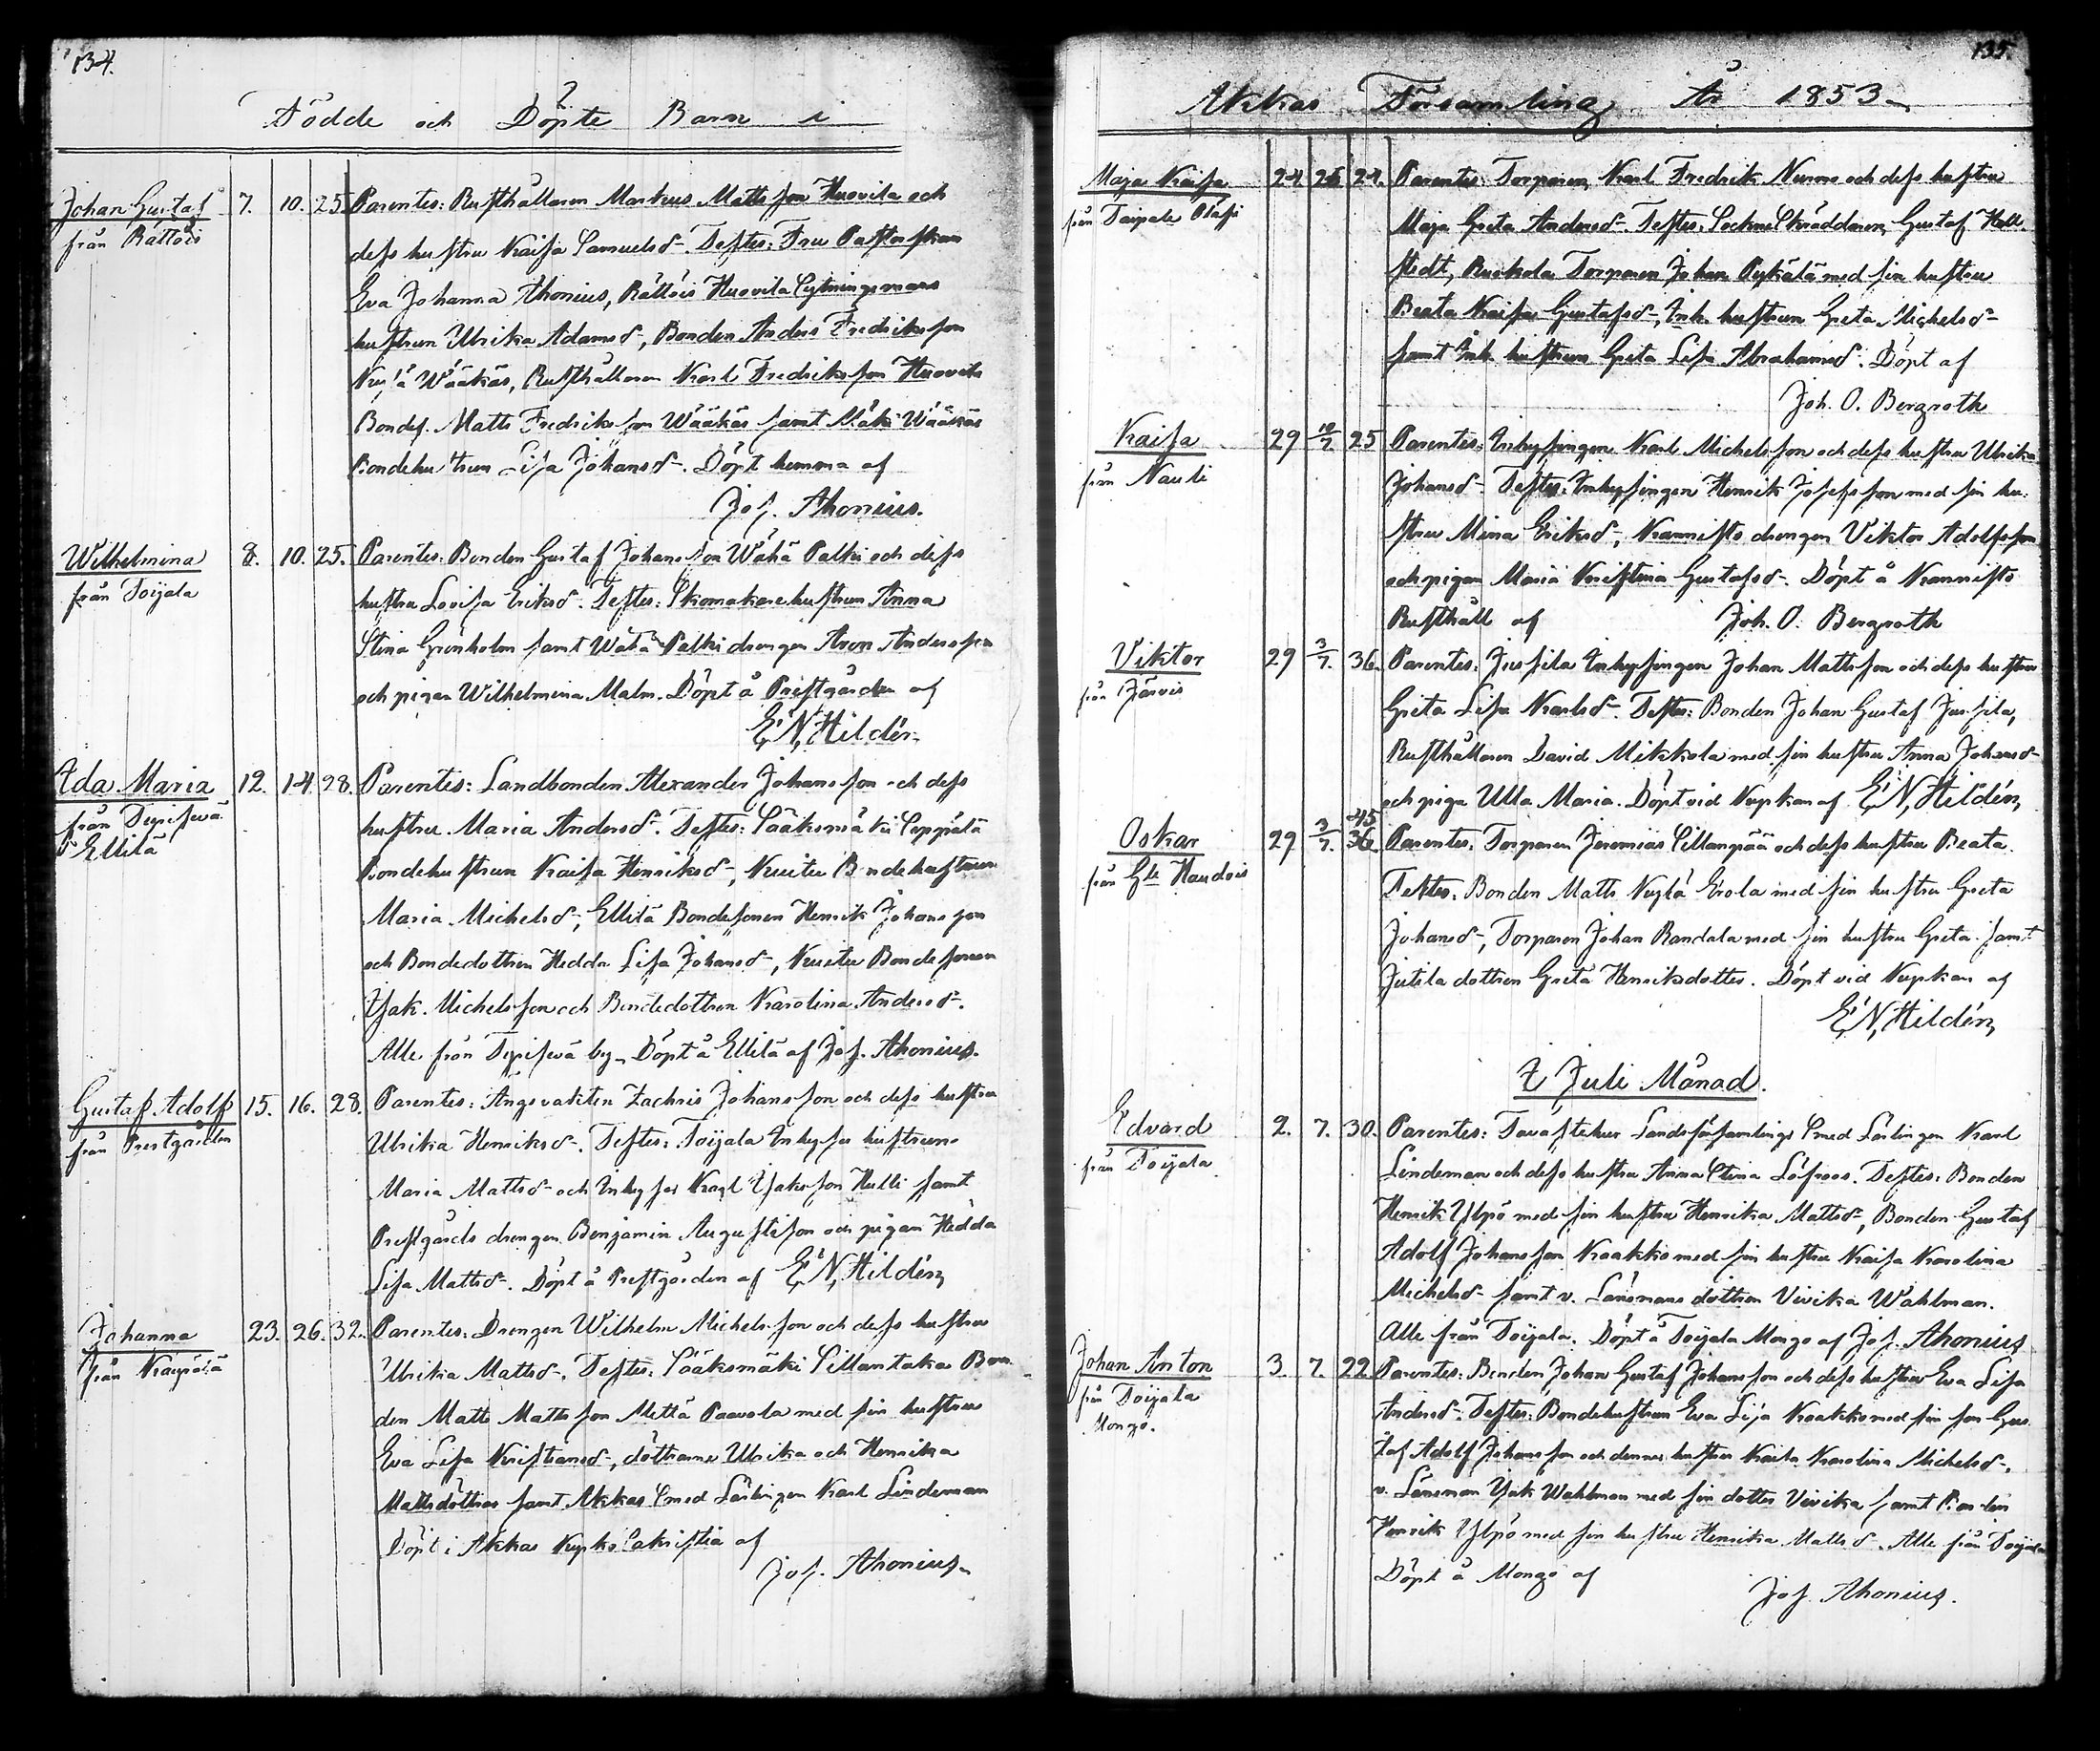 134.
Födde och Döpte Barn i
Johan Gustaf
från Rättöis
7. 10. 25.
Parentes: Rusthållaren Markus Mattsson Huovila och
dess hustru Kaisa Samuelsd. Testes: Fru Pastorskan
Eva Johanna Ahonius, Rättöis Huovila
hustrun Ulrika Adamsd, Bonden Anders Fredriksson
Wääkäs, Rusthållaren Karl Fredriksson Huovila
Bondes. Matts Fredriksson Wääkäs samt Wääkäs
Bondehustrun Lisa Johansd. Döpt hemma af
Jos. Ahonius.
Wilhelmina
från Toijala
8. 10. 25.
Parentes: Bonden Gustaf Johansson Wähä Palki och dess
hustru Lovisa Eriksd. Testes: Skomakare hustrun Anna
Stina Grönholm samt Wähä Palki drengen Aron Andersson
och pigan Wilhelmina Malm. Döpt å Prestgården af
E. N. Hildén.
Ada Maria
från
Ellilä
12. 14. 28.
Parentes: Landbonden Alexander Johansson och dess
hustru Maria Andersd. Testes: Sääksmäki Seppälä
Bondehustrun Kaisa Henriksd, Bondehustrun
Maria Michelsd, Ellilä Bondesonen Henrik Johansson
och Bondedottren Hedda Lisa Johansd, Bondesonen
Isak Michelsson och Bondedottren Karolina Andersd.
Alle från by. Döpt å Ellilä af Jos. Ahonius.
Gustaf Adolf
från Prestgården
15. 16. 28.
Parentes: Ängsvakten Zachris Johansson och dess hustru
Ulrika Henriksd. Testes: Toijala Inhyses hustrun
Maria Mattsd och Inhyses Karl Isaksson Hulli samt
Prestgårds drengen Benjamin Augustisson och pigan Hedda
Lisa Mattsd. Döpt å Prestgården af E. N. Hildén
Johanna
från
23. 26. 32.
Parentes: Drengen Wilhelm Michelsson och dess hustru
Ulrika Mattsd. Testes: Sääksmäki Sillantaka Bon-
den Matts Mattsson Mettä Paavola med sin hustru
Eva Lisa Kristiansd, döttrarne Ulrika och Henrika
Mattsdöttrar samt Akkas Smed Lärlingen Karl Lindeman
Döpt i Akkas Kyrko Sakristia af
Jos. Ahonius.
135.
Akkas Församling År 1853
Maja Kaisa
från Taipale
24 26 24.
Parentes: Torparen Karl Fredrik Nurmo och dess hustru
Maja Greta Andersd. Testes: Sockne Skräddaren Gustaf Hell-
stedt, Torparen Johan Pykälä med sin hustru
Beata Kaisa Gustafsd, Inh. hustrun Greta Michelsd
samt Inh. hustrun Greta Lisa Abrahamsd. Döpt af
Joh. O. Bergroth
Kaisa
från Nauli
29 10/7. 25
Parentes: Inhysingen Karl Michelsson och dess hustru Ulrika
Johansd. Testes: Inhysingen Henrik Josefsson med sin hu-
stru Mina Eriksd, Kannisto drengen Viktor Adolfsson
och pigan Maria Kristina Gustafsd. Döpt å Kannisto
Rusthåll af Joh. O. Bergroth
Viktor
från Järvis
29 3/7. 36.
Parentes: Jussila Inhysingen Johan Mattsson och dess hustru
Greta Lisa Karlsd. Testes: Bonden Johan Gustaf Jussila,
Rusthållaren David Mikkola med sin hustru Anna Johansd
och piga Ulla Maria. Döpt vid Kyrkan af E. N. Hildén
Oskar
från Gle Haudois
29 3/7. 45 36
Parentes: Torparen Jeremias Sillanpää och dess hustru Beata.
Testes: Bonden Matts Erola med sin hustru Greta
Johansd, Torparen Johan Randala med sin hustru Greta samt
Jutila dottren Greta Henriksdotter. Döpt vid Kyrkan af
E. N. Hildén
I Juli Månad.
Edvard
från Toijala
2. 7. 30.
Parentes: Tavastehus Landsförsamlings Smed Lärlingen Karl
Lindeman och dess hustru Anna Stina Löfroos. Testes: Bonden
Henrik Ylpö med sin hustru Henrika Mattsd, Bonden Gustaf
Adolf Johansson Kaakko med sin hustru Kaisa Karolina
Michelsd samt v. Länsmans dottren Vivika Wahlman.
Alle från Toijala. Döpt å Toijala Monzo af Jos. Ahonius
Johan Anton
från Toijala
Monzo.
3. 7. 22.
Parentes: Bonden Johan Gustaf Johansson och dess hustru Eva Lisa
Andersd. Testes: Bondehustrun Eva Lisa Kaakko med sin son Gus-
taf Adolf Johansson och dennes hustru Kaisa Karolina Michelsd,
v. Länsman Isak Wahlman med sin dotter Vivika samt Bonden
Henrik Ylpö med sin hustru Henrika Mattsd. Alle från Toijala
Döpt å Monzo af
Jos. Ahonius.